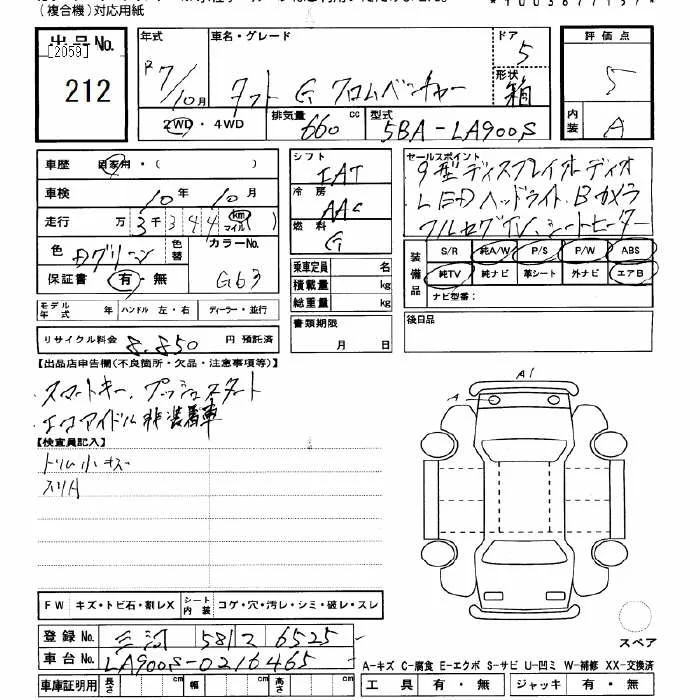 (複合機)対応用紙
出品No. [2059]
212
年式 R7/10月
車名・グレード タフト G クロムベンチャー
ドア 5
形状 箱
評価点 5
内装 A
2WD・4WD
排気量 660 cc
型式 5BA-LA900S
車歴 自家用・( )
車検 10年 10月
走行 万 3千 3 4 4 (km マイル)
色 Dグリーン 色替 カラーNo. G63
保証書 有・無
モデル年式 ハンドル 左・右 ディーラー・並行
リサイクル料金 8,850 円 預託済
シフト IAT
冷房 AAC
燃料 G
乗車定員 名
積載量 kg
総重量 kg
書類期限 月 日
セールスポイント
9型ディスプレイオーディオ
LEDヘッドライト、Bカメラ
フルセグTV、シートヒーター
装備品 S/R 純A/W P/S P/W ABS
純TV 純ナビ 革シート 外ナビ エアB
ナビ型番:
後日品
【出品店申告欄(不良箇所・欠品・注意事項等)】
・スマートキー、プッシュスタート
・エコアイドル非装着車
【検査員記入】
トリム小キズ
スリA
A1
A
FW キズ・トビ石・割レX シート内装 コゲ・穴・汚レ・シミ・破レ・スレ
登録No. 三河 581 6525
車台No. LA900S-0216465
車庫証明用 長さ cm 幅 cm 高さ cm
スペア
A-キズ C-腐食 E-エクボ S-サビ U-凹ミ W-補修 XX-交換済
工具 有・無 ジャッキ 有・無